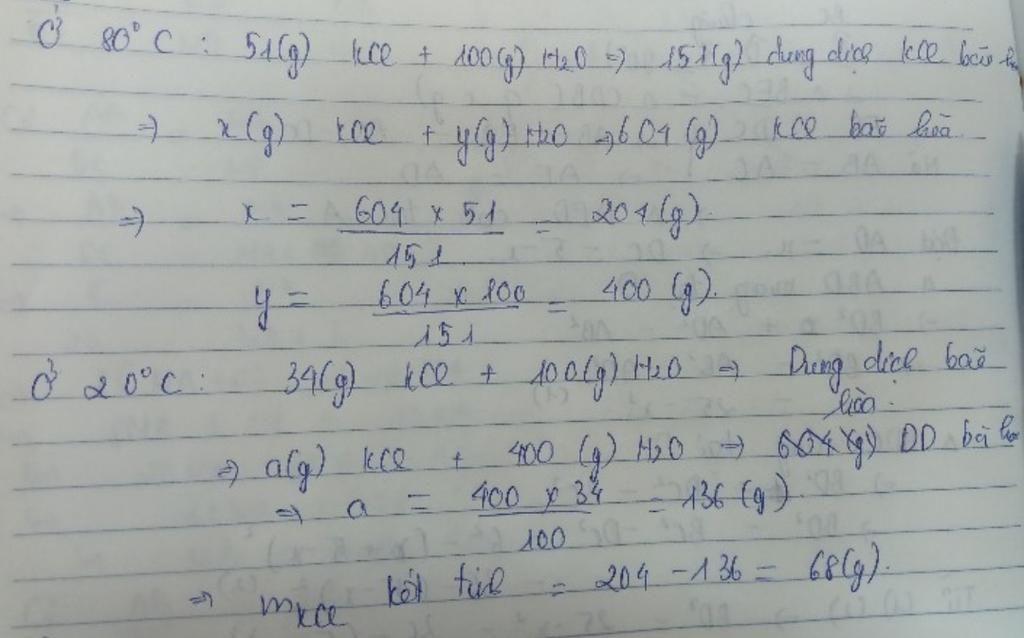 Ở 80°C: 51(g) KCl + 100(g) H2O => 151(g) dung dịch KCl bão
=> x(g) KCl + y(g) H2O => 604(g) KCl bão hòa
=> x = 604 x 51 / 151 = 204(g).
y = 604 x 100 / 151 = 400 (g).
Ở 20°C: 34(g) KCl + 100(g) H2O => Dung dịch bão
hòa.
=> a(g) KCl + 400 (g) H2O => DD
=> a = 400 x 34 / 100 = 136(g)
=> mKCl kết tinh = 204 - 136 = 68(g).